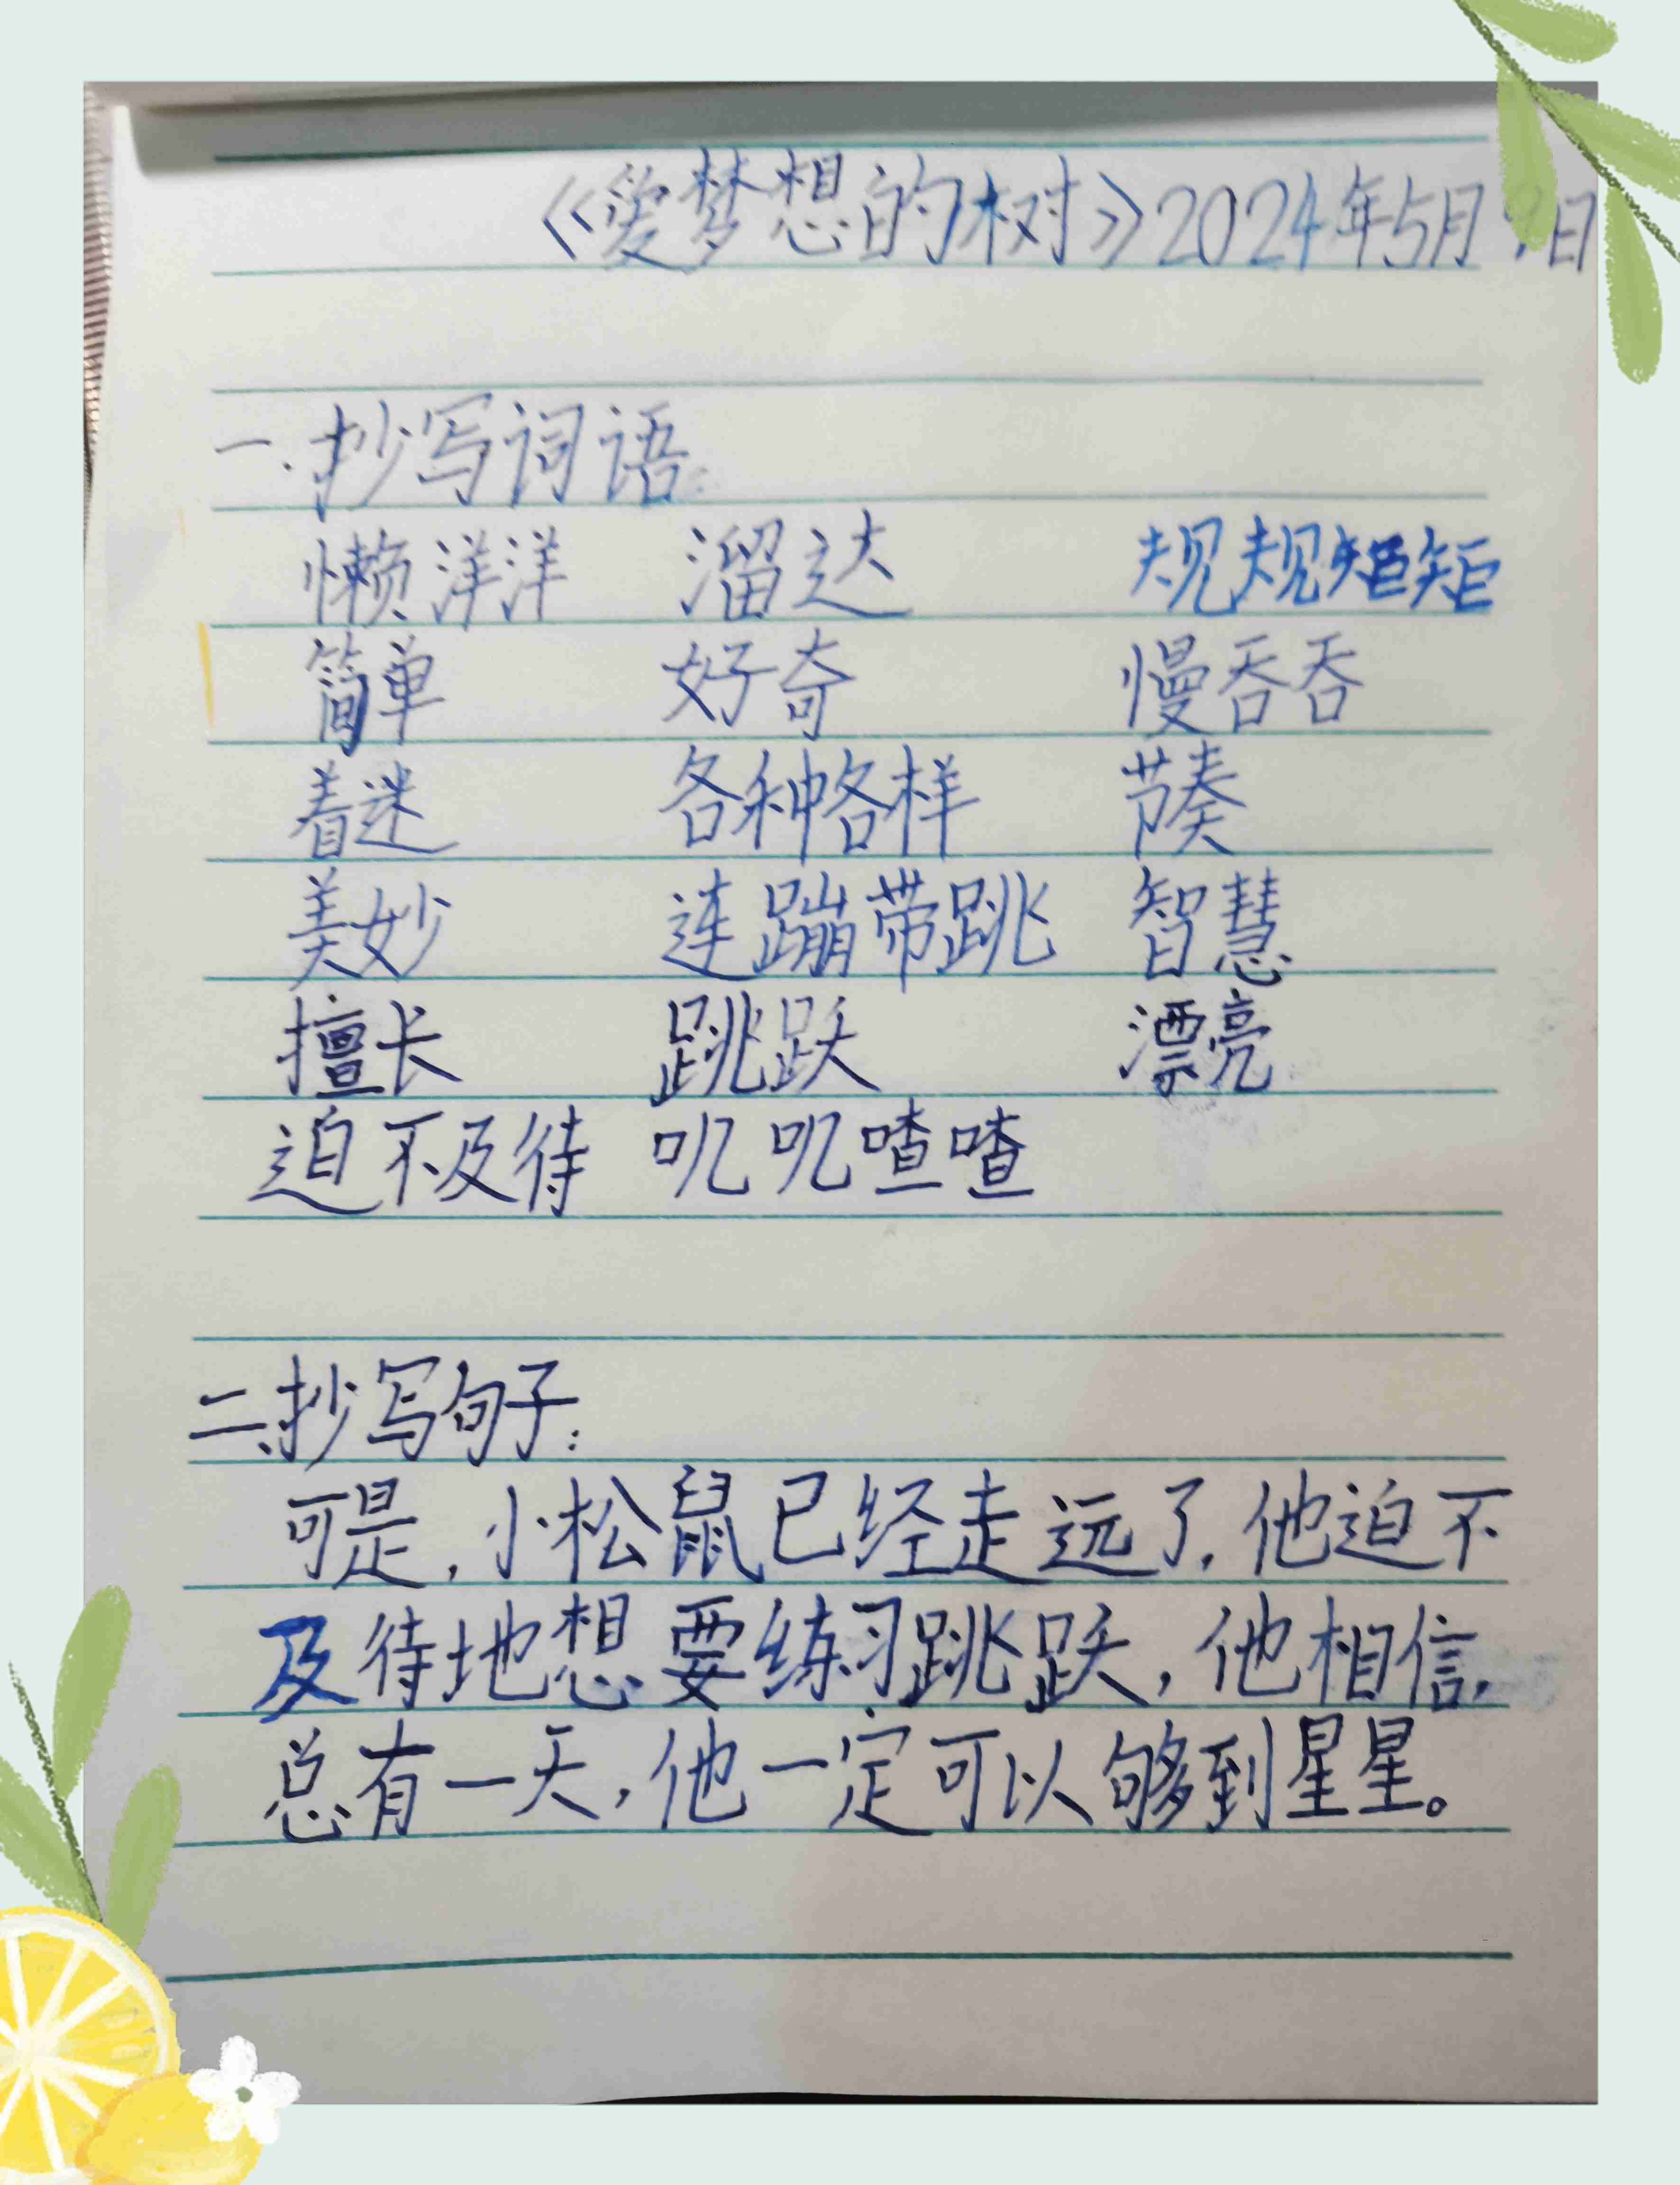 《爱梦想的树》2024年5月9日
一.抄写词语:
懒洋洋 溜达 规规矩矩
简单 好奇 慢吞吞
着迷 各种各样 节奏
美妙 连蹦带跳 智慧
擅长 跳跃 漂亮
迫不及待 叽叽喳喳
二、抄写句子:
可是,小松鼠已经走远了,他迫不
及待地想要练习跳跃,他相信,
总有一天,他一定可以够到星星。